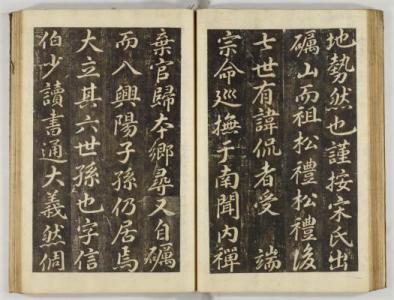 地勢然也謹按宋氏出
礪山而祖松禮松禮後
七世有諱侃者受　端
宗命巡撫于南聞内禪
棄官歸本鄉尋又自礪
而入興陽子孫仍居焉
大立其六世孫也字信
伯少讀書通大義然倜